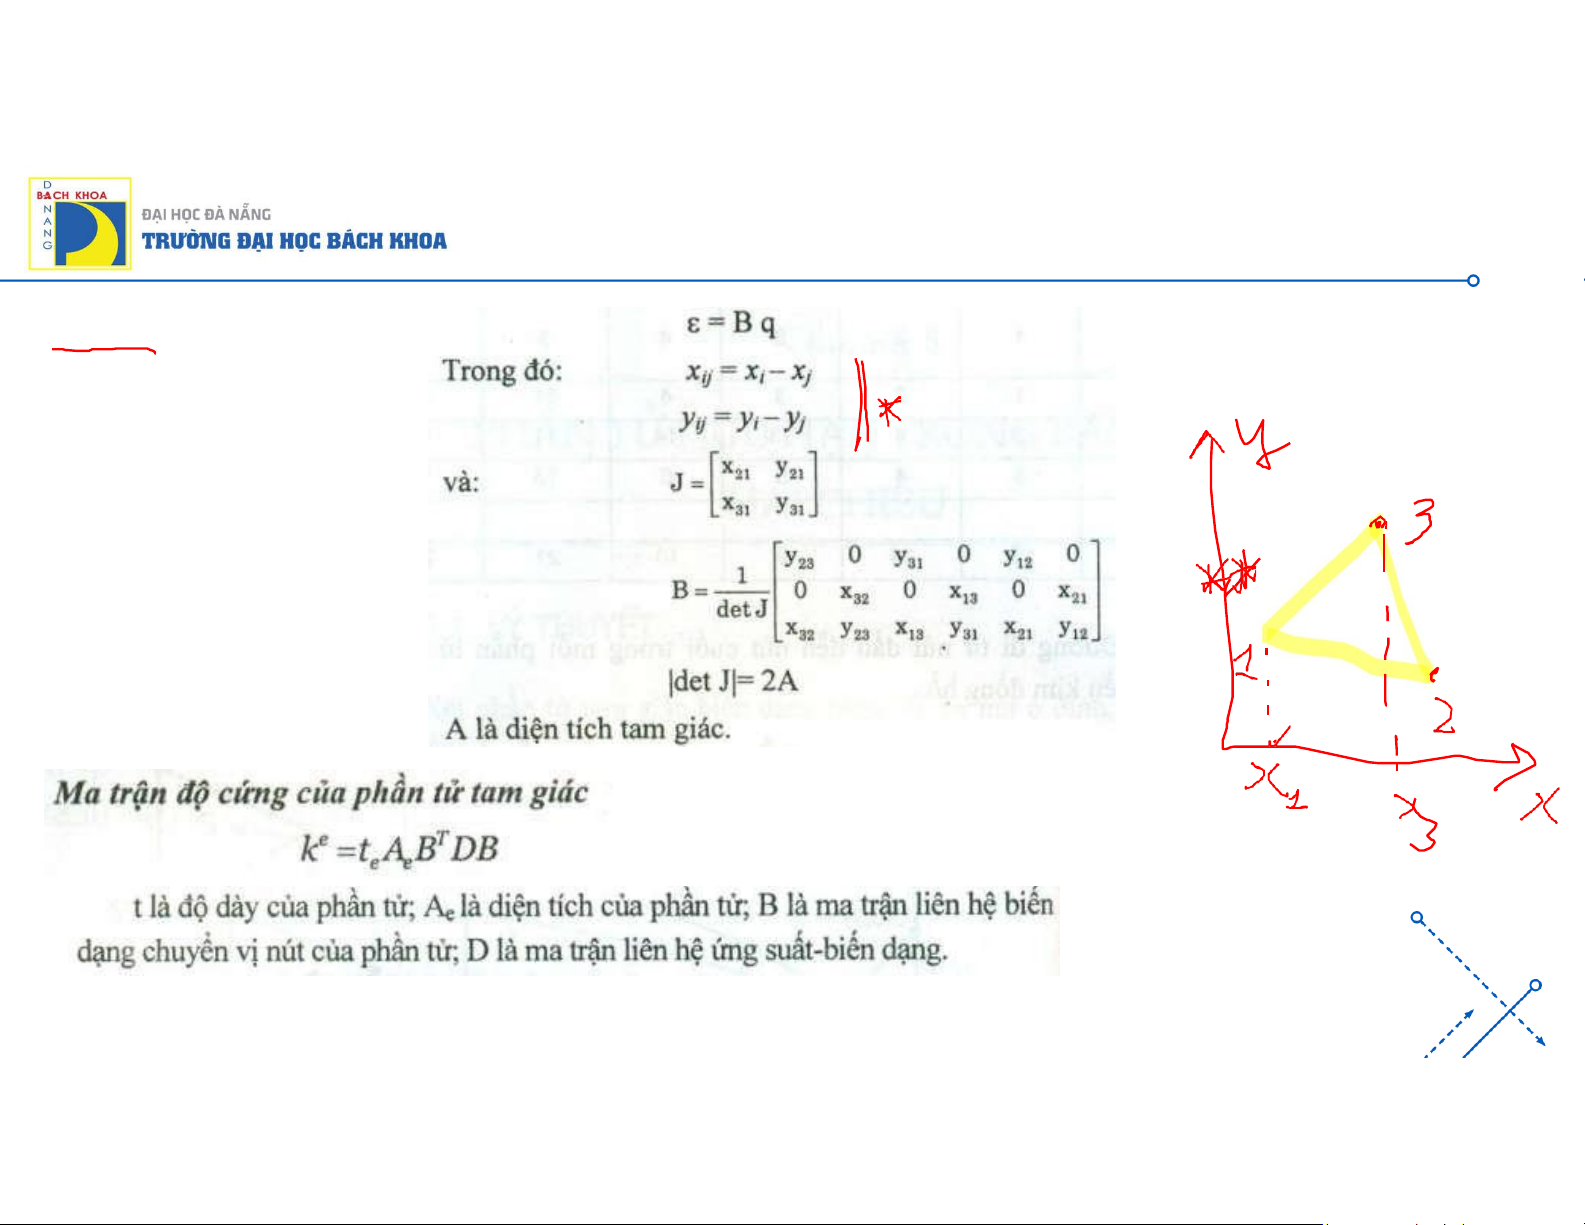 ĐÀ NANG
BÁCH KHOA
ĐẠI HỌC ĐÀ NẴNG
TRƯỜNG ĐẠI HỌC BÁCH KHOA
ε = B q
Trong đó: xij = xi – xj
yij = yi – yj
*
và: J = [x21 y21
x31 y31]
B = 1/det J [y23 0 y31 0 y12 0
0 x32 0 x13 0 x21
x32 y23 x13 y31 x21 y12]
|det J| = 2A
A là diện tích tam giác.
Ma trận độ cứng của phần tử tam giác
k^e = t_e A_e B^T DB
t là độ dày của phần tử; Ae là diện tích của phần tử; B là ma trận liên hệ biến
dạng chuyển vị nút của phần tử; D là ma trận liên hệ ứng suất-biến dạng.
y
3
**
1
2
x1
x3
x